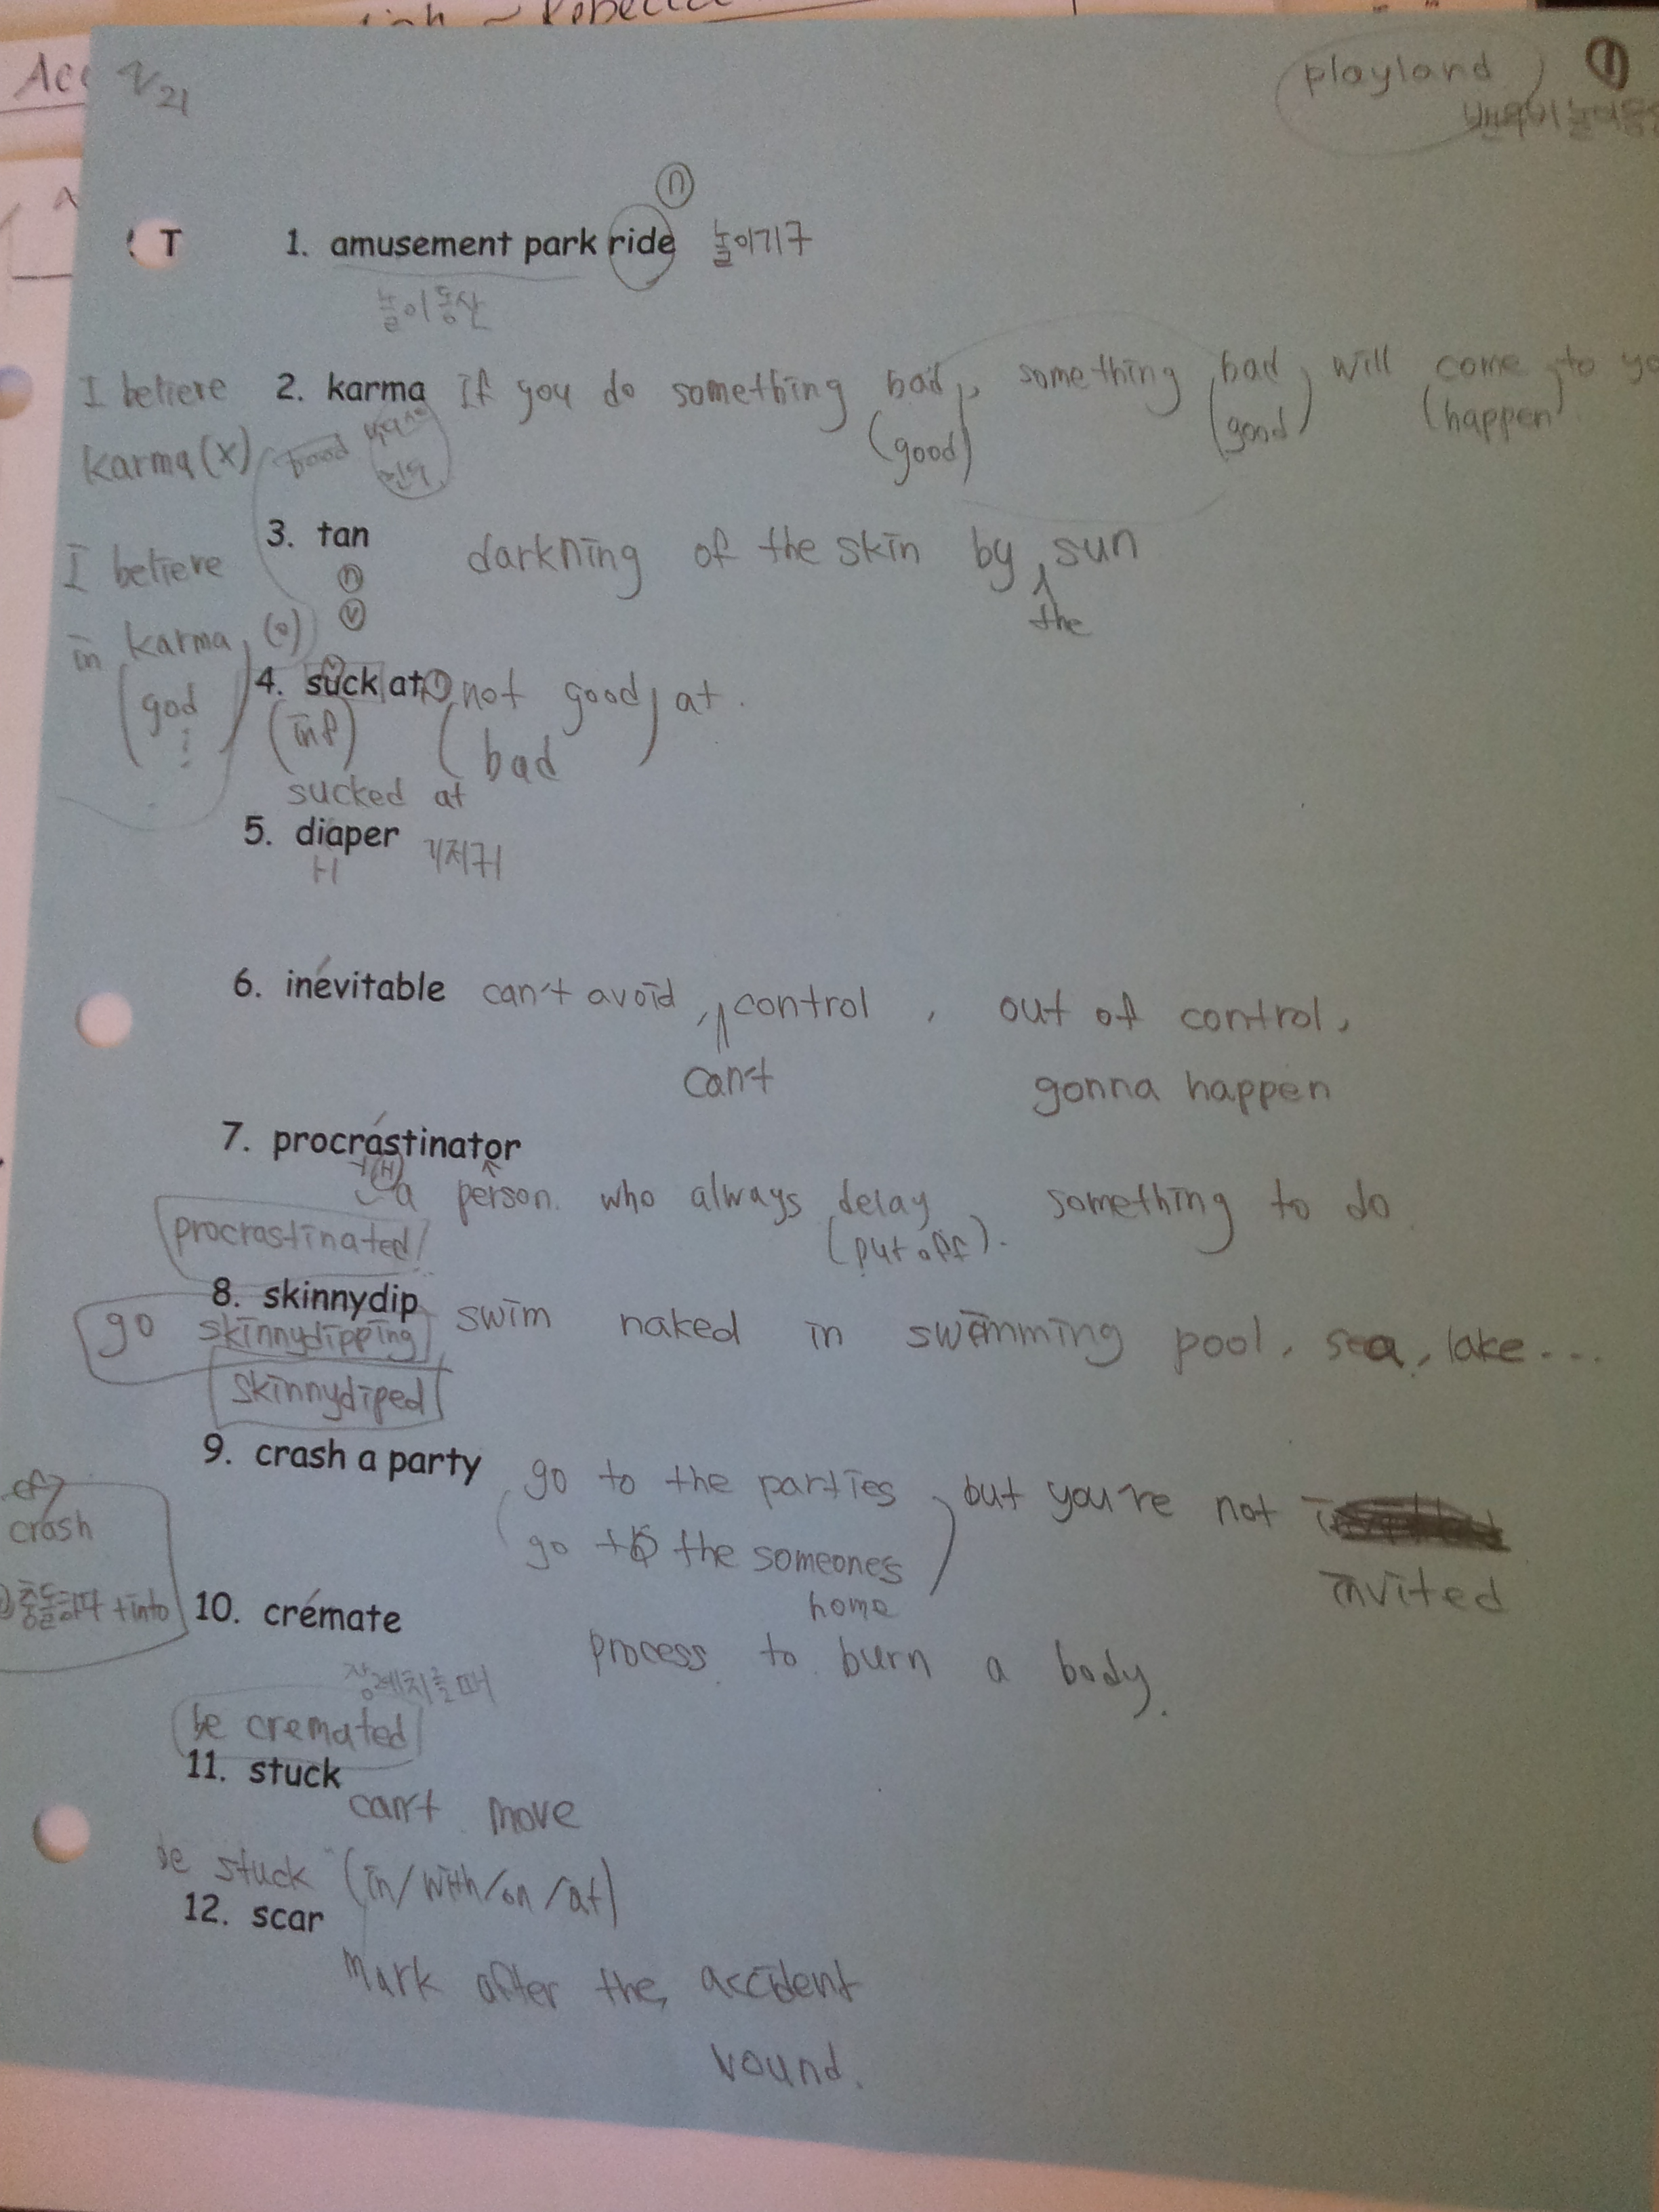 playland
T 1. amusement park ride 놀이기구
놀이동산
I believe 2. karma If you do something bad, something bad will come to
karma (X) (good) (good) (happen)
3. tan darkning of the skin by sun
I believe n the
v
in karma (o)
4. suck at not good at.
(god (inf) (bad)
sucked at
5. diaper 기저귀
ㅐ
6. inevitable can't avoid, control, out of control,
can't gonna happen
7. procrastinator
a person who always delay something to do
procrastinated (put off).
8. skinnydip swim naked in swimming pool, sea, lake...
go skinnydipping
skinnydiped
9. crash a party go to the parties but you're not
crash go to the someones invited
home
충돌하다 +into 10. cremate
process to burn a body.
장례치를때
be cremated
11. stuck
can't move
be stuck (in/with/on/at)
12. scar
mark after the accident
vound.